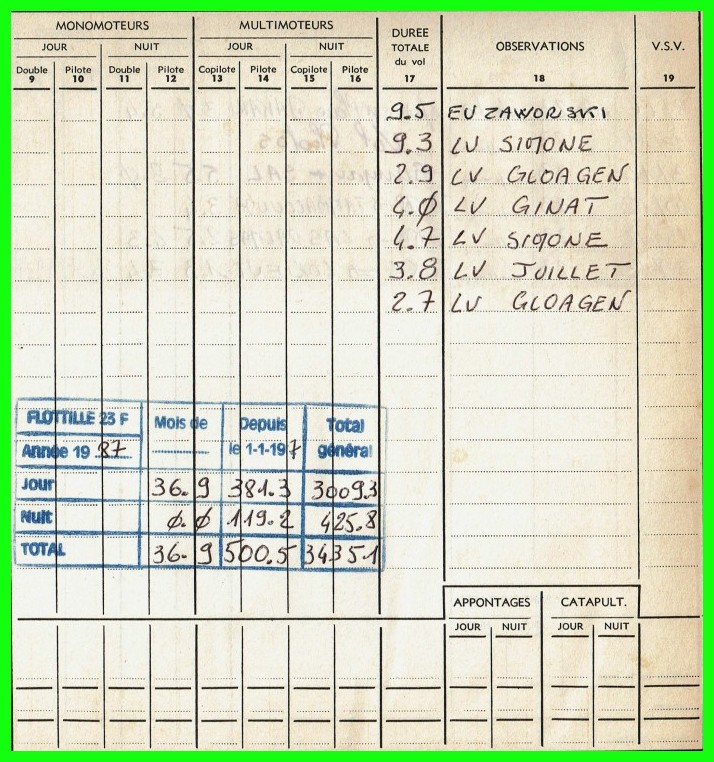 MONOMOTEURS MULTIMOTEURS DUREE TOTALE du vol OBSERVATIONS V.S.V.
JOUR NUIT JOUR NUIT
Double Pilote Double Pilote Copilote Pilote Copilote Pilote
9 10 11 12 13 14 15 16 17 18 19
9.5 EV ZAWORSKI
9.3 LV SIMONE
2.9 LV GLOAGEN
4.0 LV GINAT
4.7 LV SIMONE
3.8 LV JUILLET
2.7 LV GLOAGEN
FLOTTILLE 23 F Mois de Depuis Total
Année 19 87 le 1-1-197 général
Jour 36.9 381.3 3009.3
Nuit 0.0 119.2 425.8
TOTAL 36.9 500.5 3435.1
APPONTAGES CATAPULT.
JOUR NUIT JOUR NUIT